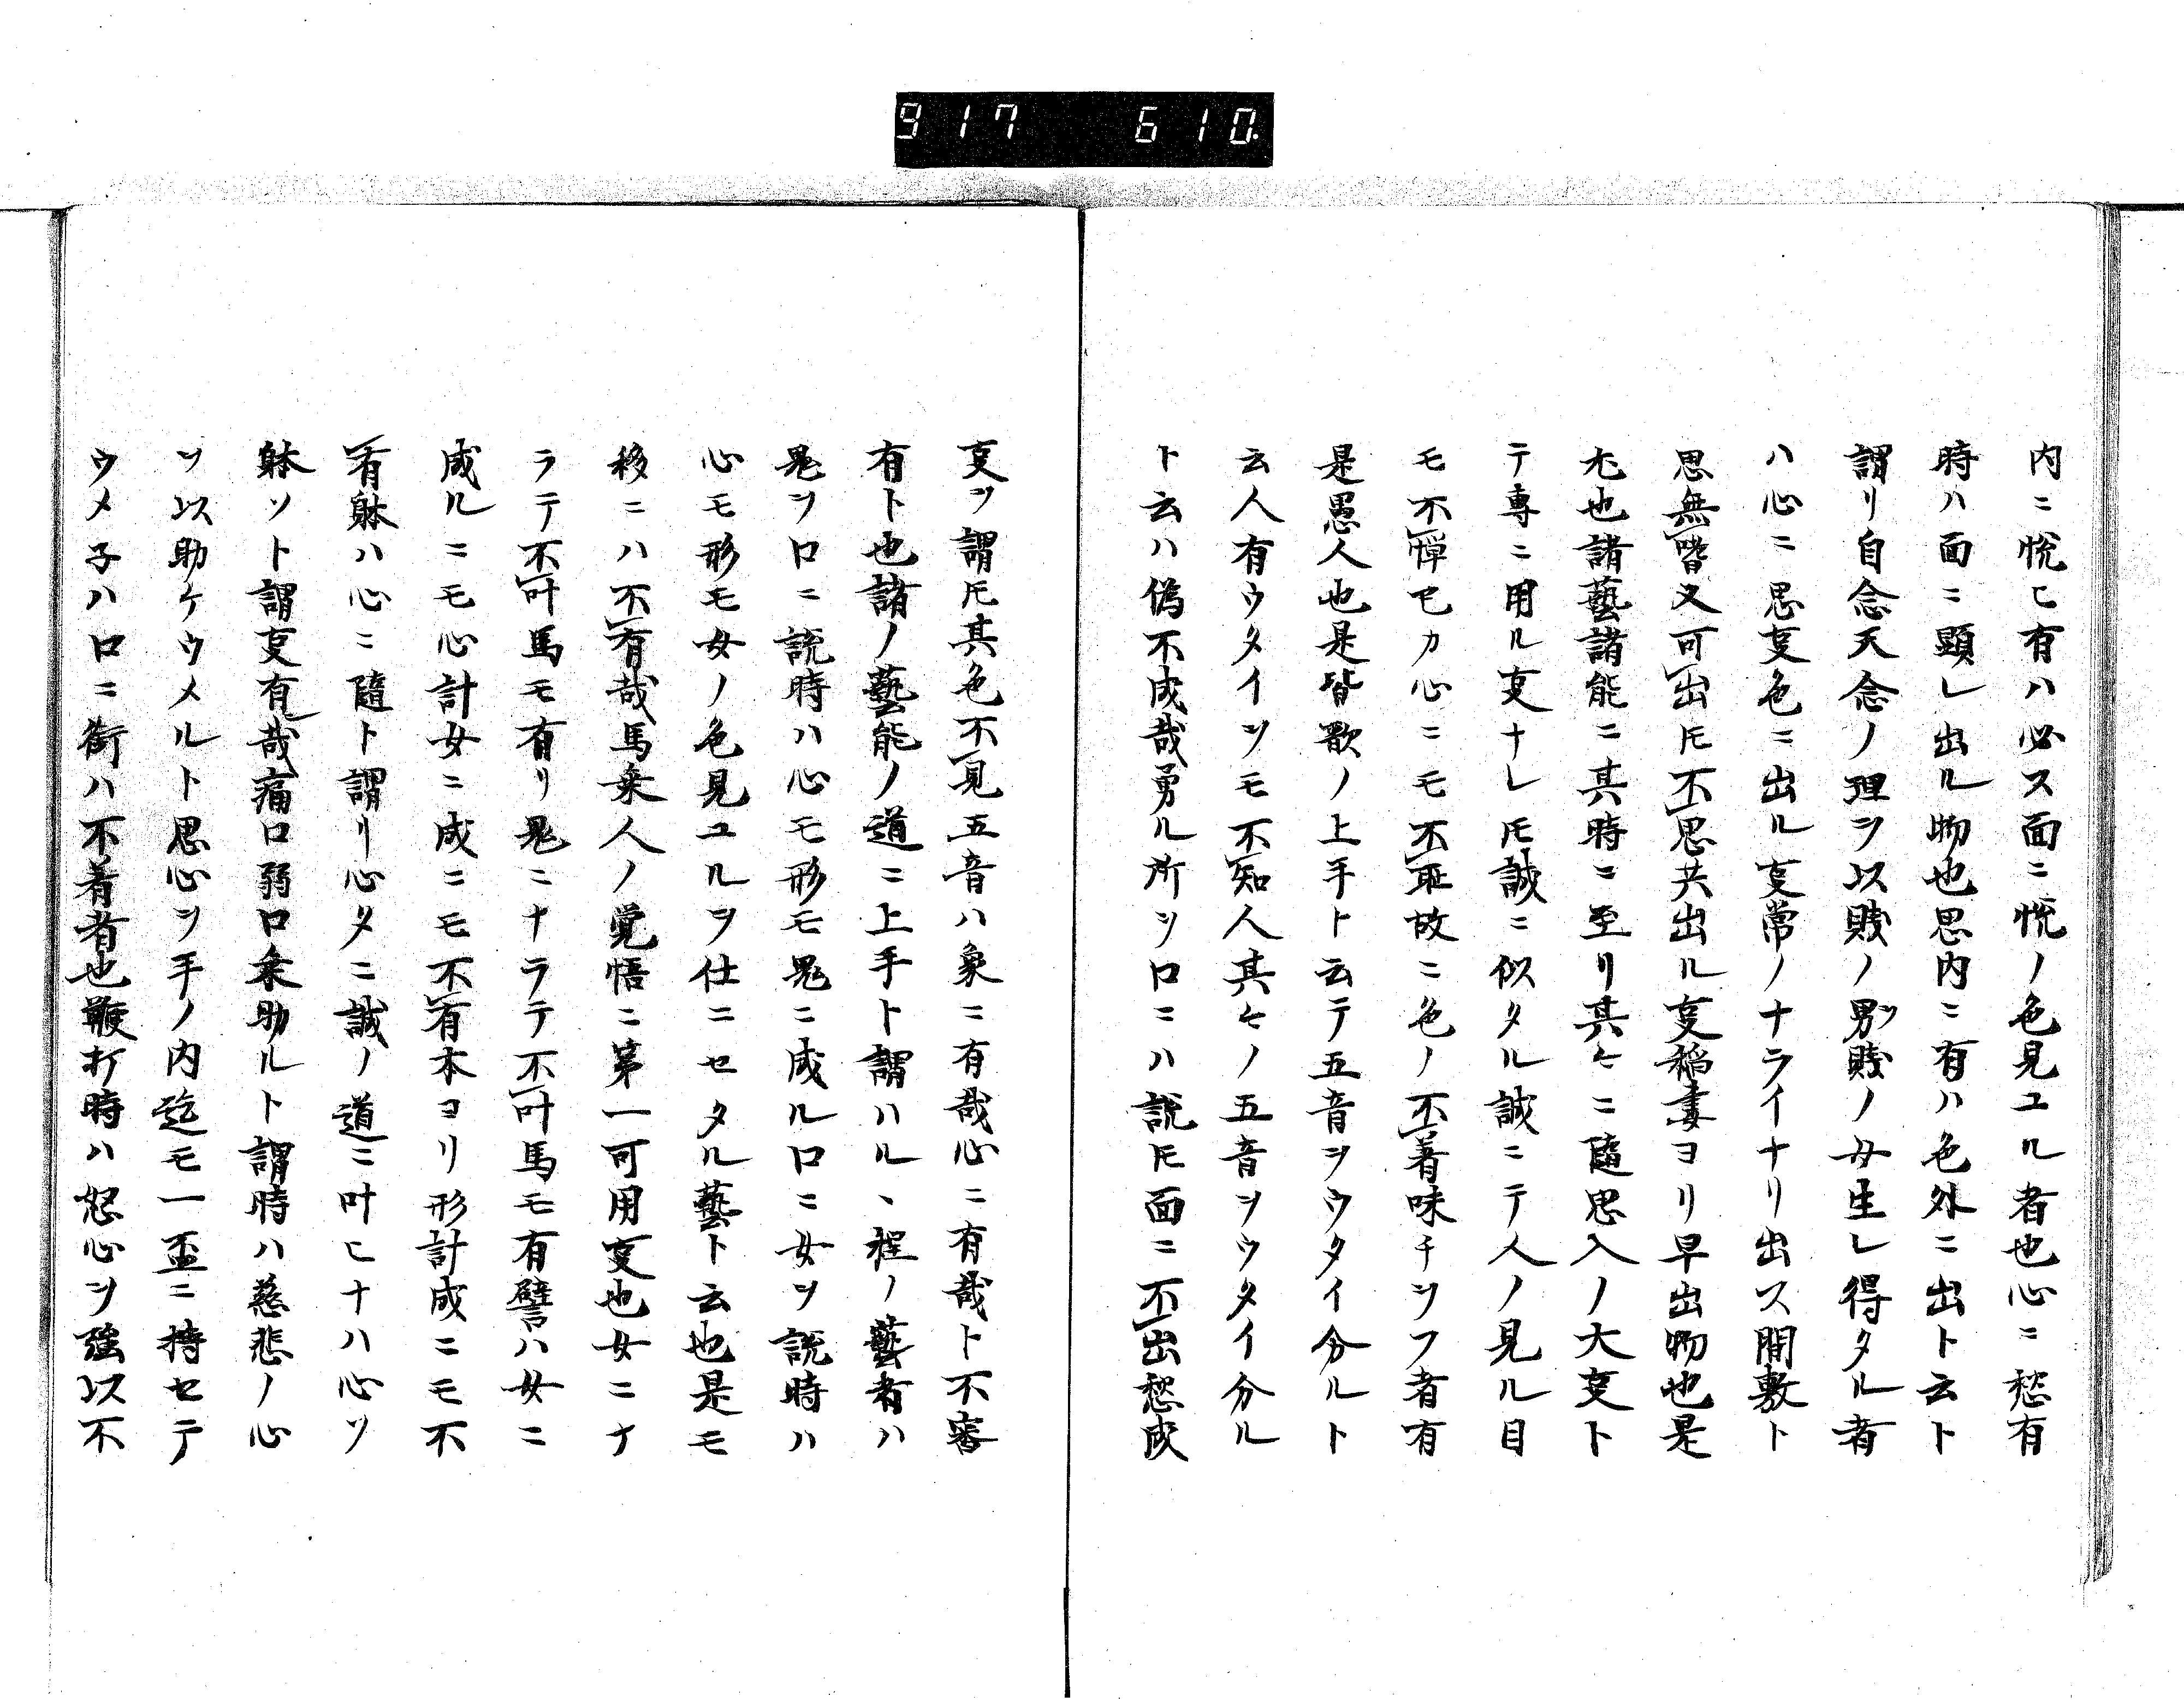 917 610.
内ニ悦ヒ有ハ必ス面ニ悦ノ色見ユル者也心ニ愁有
時ハ面ニ顕レ出ル物也思内ニ有ハ色外ニ出ト云ト
謂リ自念天念ノ理ヲ以賤ノ男賤ノ女生レ得タル者
ハ心ニ思叓色ニ出ル叓常ノナライナリ出ス間敷ト
思無皆又可出𪜈不思共出ル叓稲妻ヨリ早出物也是
尤也諸藝諸能ニ其時ニ至リ其々ニ随思入ノ大叓ト
テ専ニ用ル叓ナレ𪜈誠ニ似タル誠ニテ人ノ見ル目
モ不憚己カ心ニモ不恥故ニ色ノ不着味チソフ者有
是愚人也是皆歌ノ上手ト云テ五音ヲウタイ分ルト
云人有ウタイツモ不知人其々ノ五音ヲウタイ分ル
ト云ハ偽不成哉勇ル所ヲ口ニハ説𪜈面ニ不出愁成
叓ヲ謂𪜈其色不見五音ハ象ニ有哉心ニ有哉ト不審
有ト也諸ノ藝能ノ道ニ上手ト謂ハルヽ程ノ藝者ハ
鬼ヲ口ニ説時ハ心モ形モ鬼ニ成ル口ニ女ヲ説時ハ
心モ形モ女ノ色見ユルヲ仕ニセタル藝ト云也是モ
移ニハ不有哉馬乗人ノ覚悟ニ第一可用叓也女ニナ
ラテ不叶馬モ有リ鬼ニナラテ不叶馬モ有譬ハ女ニ
成ルニモ心計女ニ成ニモ不有本ヨリ形計成ニモ不
有躰ハ心ニ随ト謂リ心タニ誠ノ道ニ叶ヒナハ心ソ
躰ソト謂叓有哉痛口弱口乗助ルト謂時ハ慈悲ノ心
ヲ以助ケウメルト思心ヲ手ノ内迄モ一盃ニ持セテ
ウメ子ハ口ニ銜ハ不着者也鞭打時ハ怒心ヲ強以不